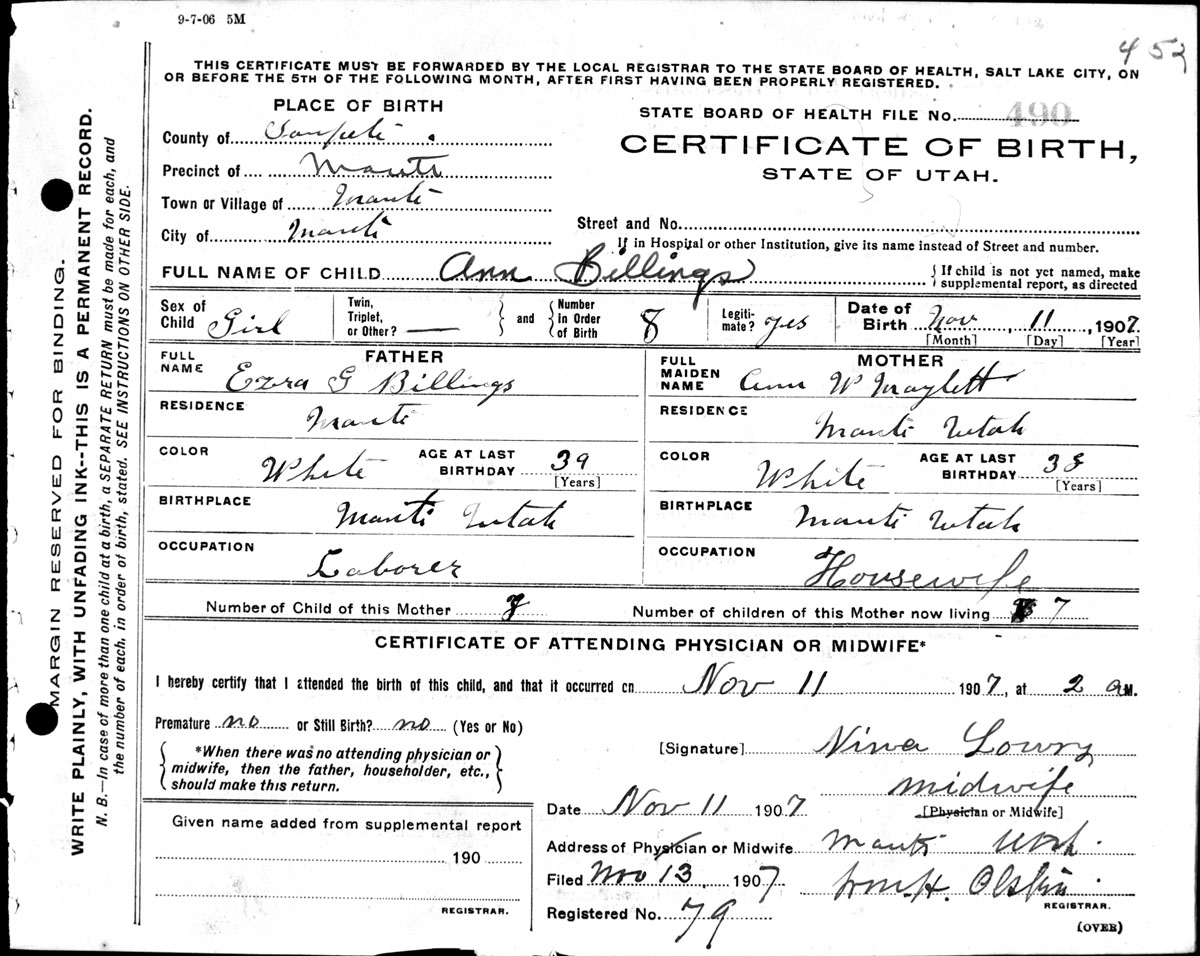 9-7-06 5M
453
THIS CERTIFICATE MUST BE FORWARDED BY THE LOCAL REGISTRAR TO THE STATE BOARD OF HEALTH, SALT LAKE CITY, ON
OR BEFORE THE 5TH OF THE FOLLOWING MONTH, AFTER FIRST HAVING BEEN PROPERLY REGISTERED.
PLACE OF BIRTH
STATE BOARD OF HEALTH FILE No. 490
County of Sanpete
CERTIFICATE OF BIRTH,
STATE OF UTAH.
Precinct of Manti
Town or Village of Manti
Street and No.
City of Manti
If in Hospital or other Institution, give its name instead of Street and number.
FULL NAME OF CHILD Ann Billings { If child is not yet named, make
supplemental report, as directed
Sex of Child Girl Twin, Triplet, or Other? — and Number in Order of Birth 8 Legitimate? yes Date of Birth Nov, 11, 1907
[Month] [Day] [Year]
FATHER
FULL NAME Ezra G Billings
RESIDENCE Manti
COLOR White AGE AT LAST BIRTHDAY 39 [Years]
BIRTHPLACE Manti Utah
OCCUPATION Laborer
MOTHER
FULL MAIDEN NAME Ann W Maylett
RESIDENCE Manti Utah
COLOR White AGE AT LAST BIRTHDAY 38 [Years]
BIRTHPLACE Manti Utah
OCCUPATION Housewife
Number of Child of this Mother 8 Number of children of this Mother now living 7
CERTIFICATE OF ATTENDING PHYSICIAN OR MIDWIFE*
I hereby certify that I attended the birth of this child, and that it occurred on Nov 11 1907, at 2 a M.
Premature no or Still Birth? no (Yes or No)
*When there was no attending physician or
midwife, then the father, householder, etc.,
should make this return.
[Signature] Nina Lowry
midwife
Date Nov 11 1907 [Physician or Midwife]
Address of Physician or Midwife Manti Utah
Filed Nov 13, 1907 Wm. H.
REGISTRAR.
Registered No. 79
(OVER)
Given name added from supplemental report
190
REGISTRAR.
MARGIN RESERVED FOR BINDING.
WRITE PLAINLY, WITH UNFADING INK--THIS IS A PERMANENT RECORD.
N. B.—In case of more than one child at a birth, a SEPARATE RETURN must be made for each, and
the number of each, in order of birth, stated. SEE INSTRUCTIONS ON OTHER SIDE.